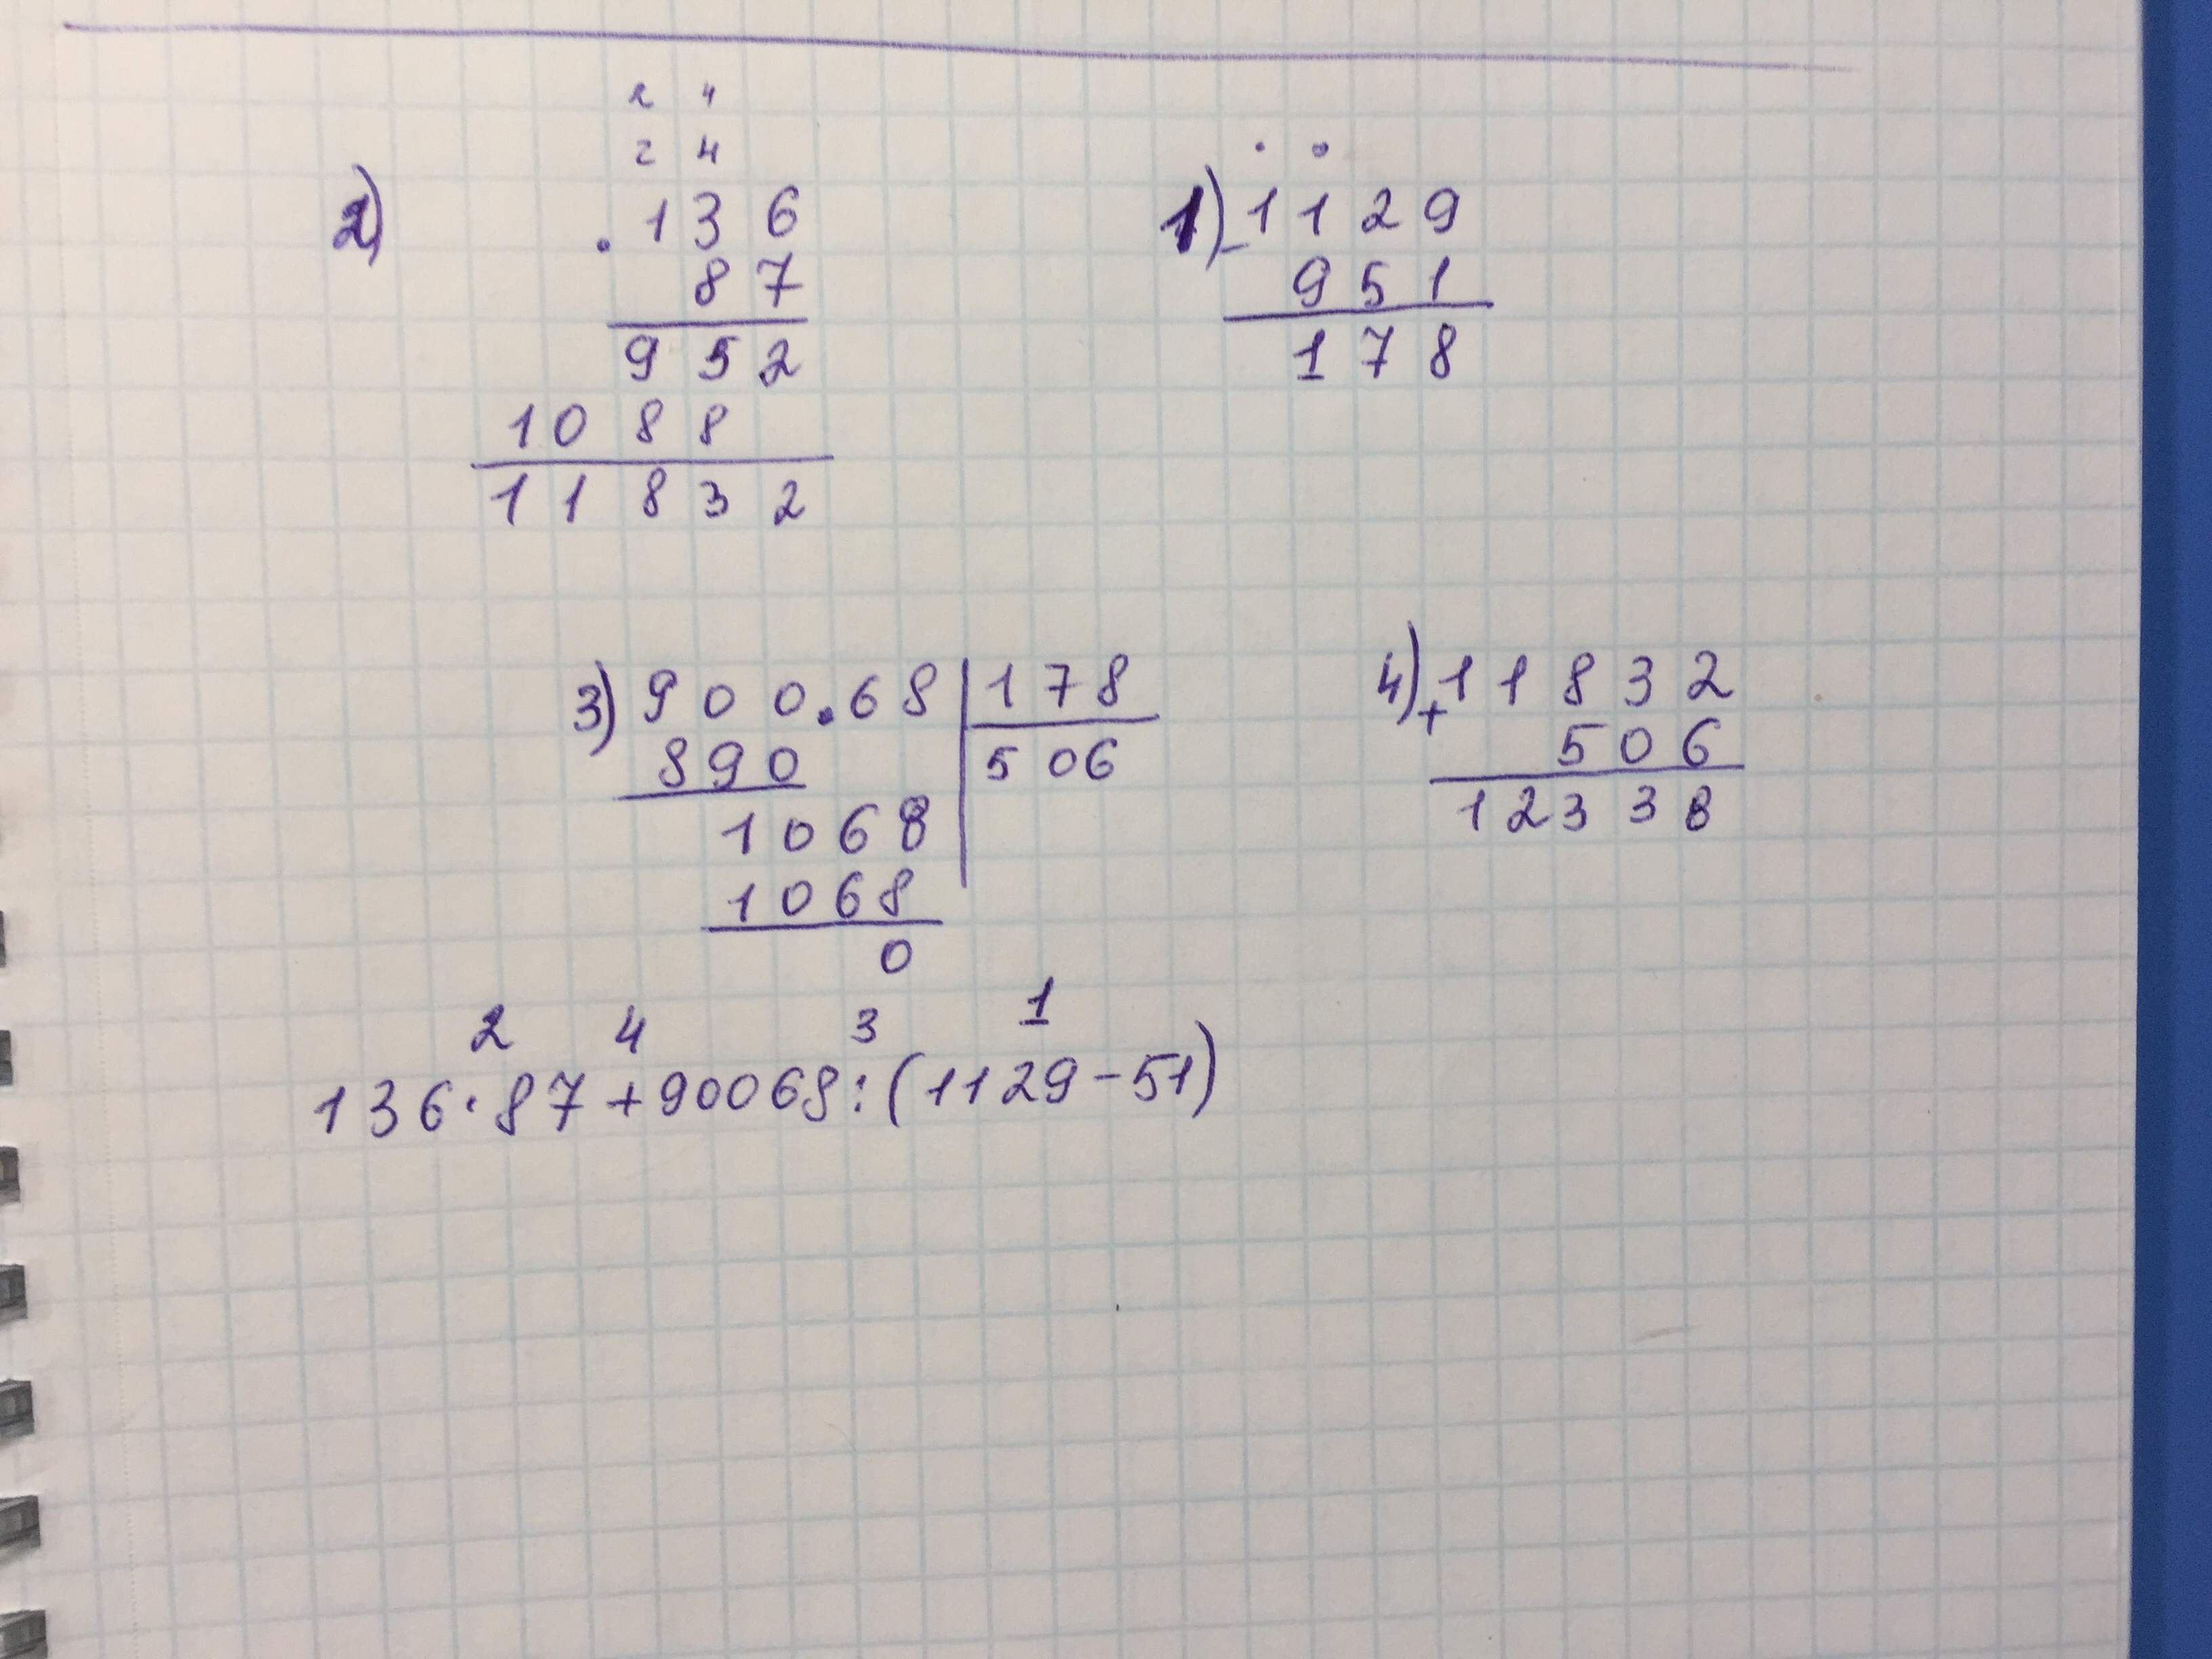 2 4
2 4
2) · 136
87
952
1088
11832
1) - 1129
951
178
3) 900.68 | 178
890 506
1068
1068
0
4) + 11832
506
12338
2 4 3 1
136·87+90068:(1129-51)